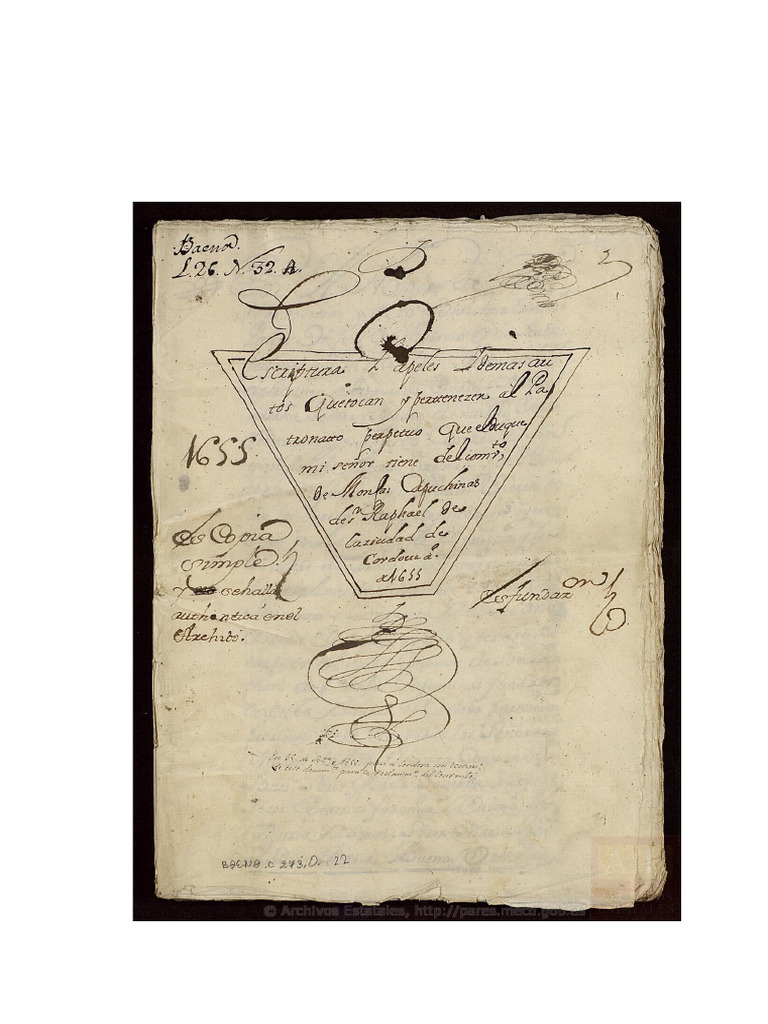 Baena.
L. 26. N. 32. A.
Escriptura Papeles Ydemas au
tos Quetocan y pertenezen al Pa
tronato perpetuo Que elDuque
mi señor tiene delcomto,
de Monjas Capuchinas
desn Raphael de
laziudad de
Cordoua ao.
1655
1655.
es Copia
simple.
Y se halla
authentica en el
Archivo.
es fundazon
para la
del Convento,
BAENA, C 273, D. 22
© Archivos Estatales, http://pares.mecd.gob.es